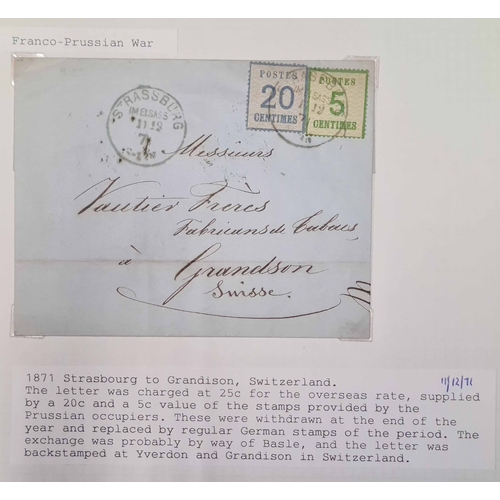 Franco-Prussian War
STRASSBURG
IM ELSASS
11 12
POSTES
20
CENTIMES
POSTES
5
CENTIMES
Messieurs
Vautier Frères
Fabricans de Tabacs
à Grandson
Suisse.
1871 Strasbourg to Grandison, Switzerland. 11/12/71
The letter was charged at 25c for the overseas rate, supplied
by a 20c and a 5c value of the stamps provided by the
Prussian occupiers. These were withdrawn at the end of the
year and replaced by regular German stamps of the period. The
exchange was probably by way of Basle, and the letter was
backstamped at Yverdon and Grandison in Switzerland.